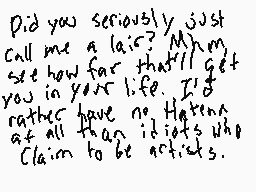 Did you seriously just
call me a lair? Mhm,
see how far that'll get
you in your life. I'd
rather have no Hatenn
at all than idiots who
claim to be artists.